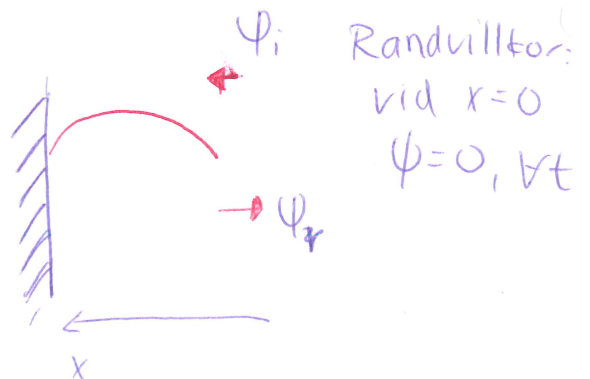 ψi
Randvillkor:
vid x=0
ψ=0, ∀t
ψr
x